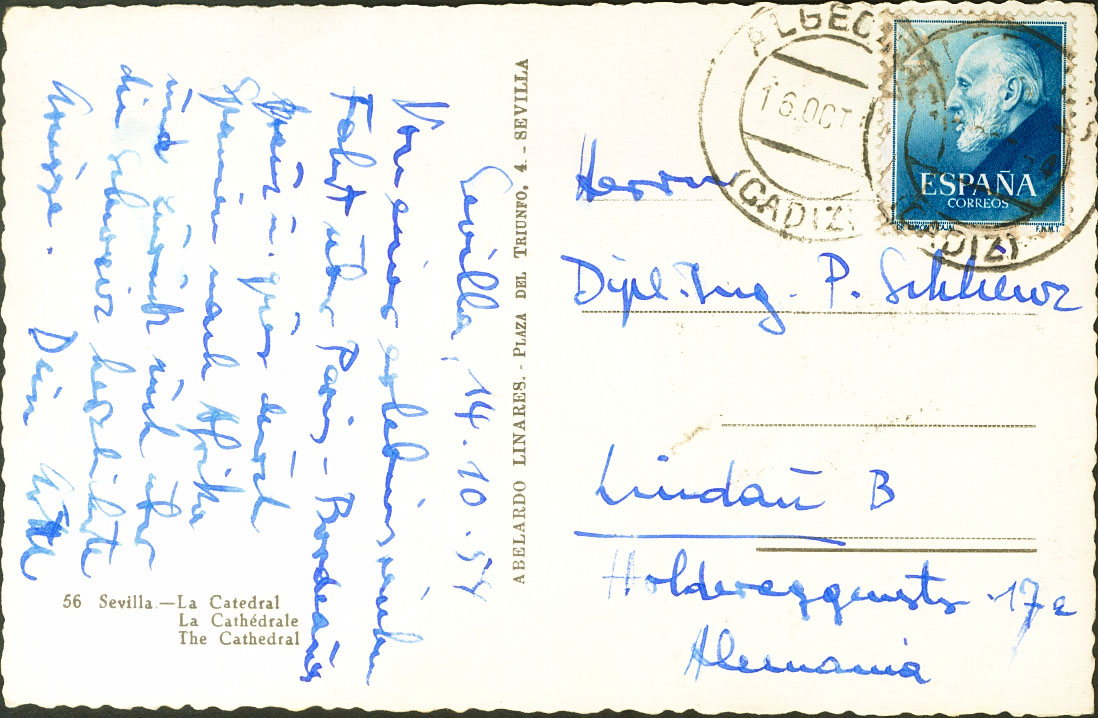 Sevilla, 14.10.54
Von einer erlebnisreichen
Fahrt über Paris - Bordeaux
quer durch
Spanien nach Afrika
und zurück und über
die Schweiz herzliche
Grüsse.
Dein
56 Sevilla.—La Catedral
La Cathédrale
The Cathedral
ABELARDO LINARES. - PLAZA DEL TRIUNFO, 4. - SEVILLA
ALGECI
16.OCT
(CADIZ)
(CADIZ)
ESPAÑA
CORREOS
DR. RAMON Y CAJAL
F.N.M.T.
Herrn
Dipl.-Ing. P.
Lindau B
Holdereggenstr. 17a
Alemania